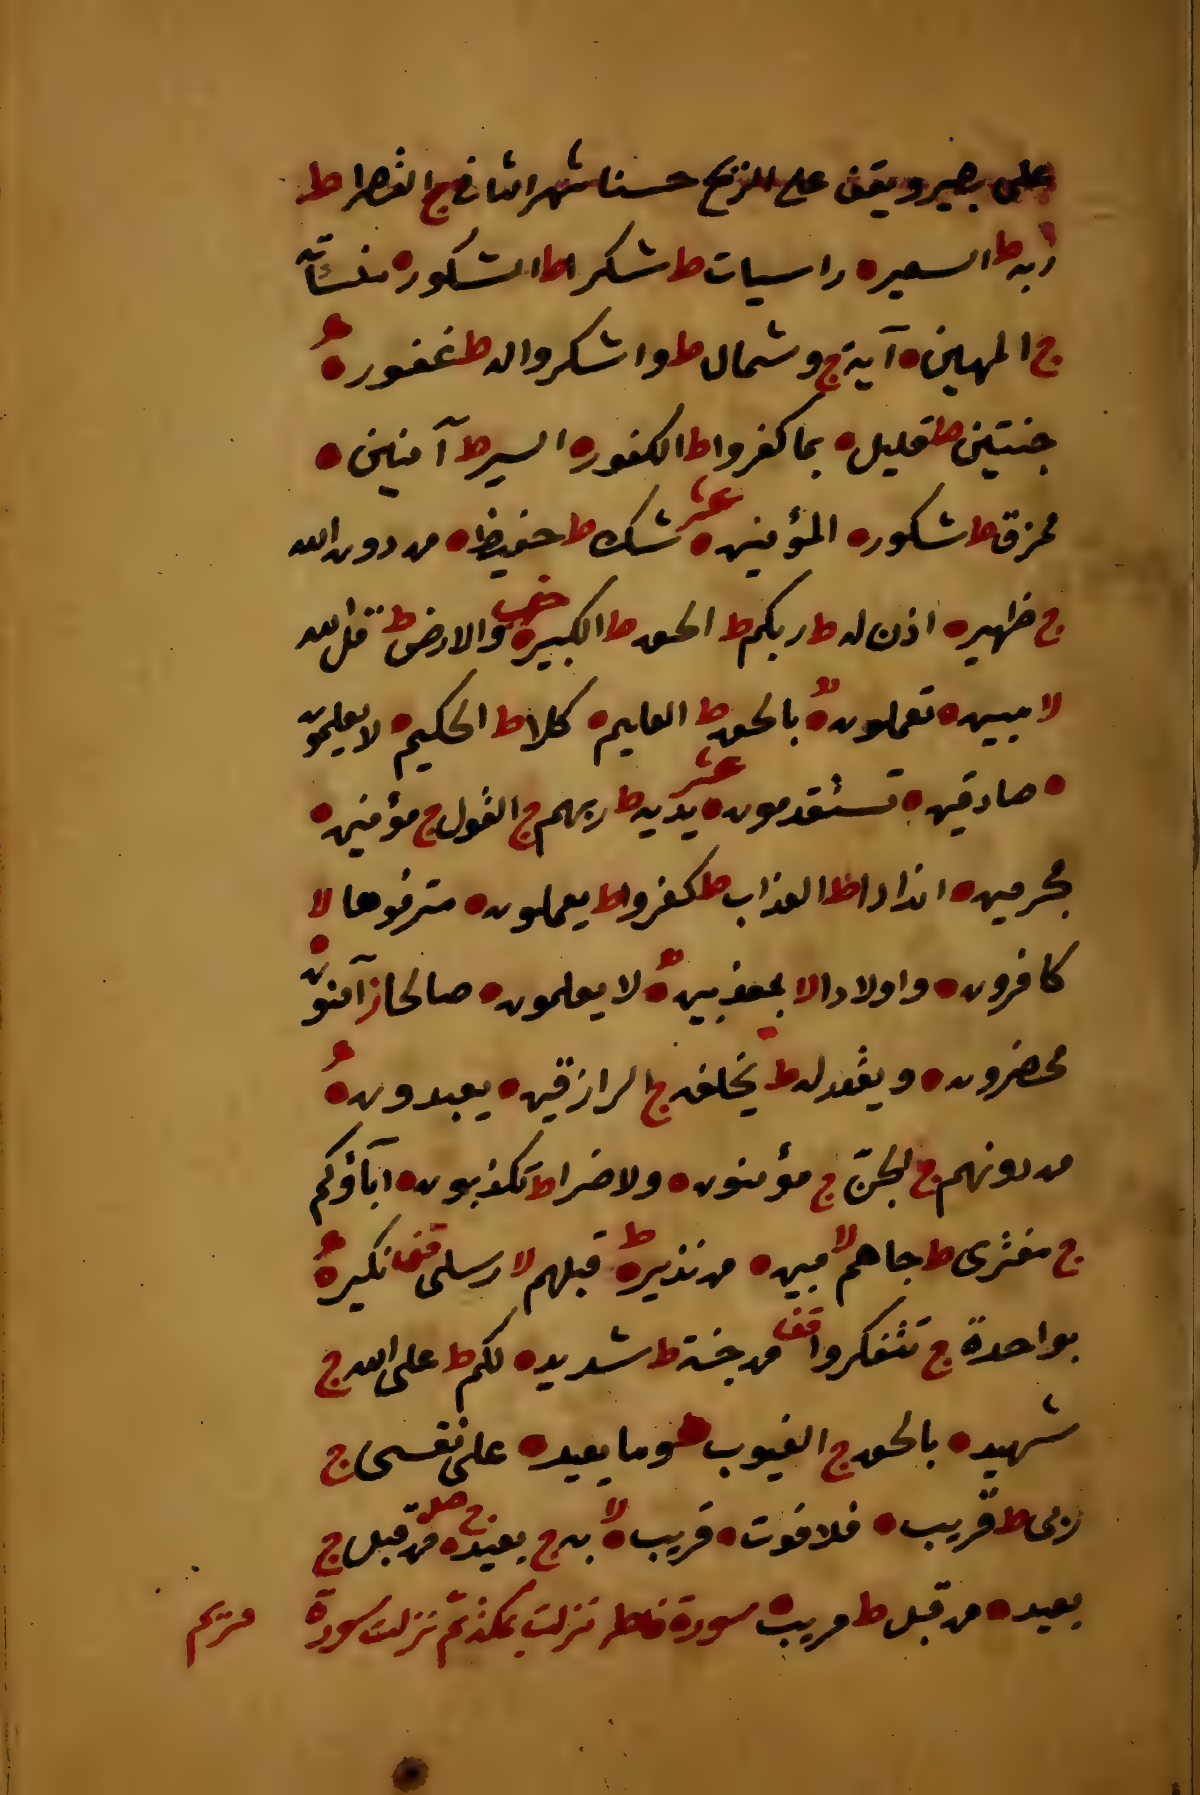 على بصير ويقف على الريح حسنا شهر الثاني ج القطر ط
ربه ط السعير ه راسيات ط شكرا ط الشكور ه منسأته
ج المهين ه آية ج وشمال ط واشكروا له ط غفور ه
جنتين ط قليل ه بما كفروا ط الكفور ه السير ط آمنين ه
ممزق ط شكور ه المؤمنين ه عشر شك ط حفيظ ه من دون الله
ج ظهير ه اذن له ط ربكم ط الحق ط الكبير ه حزب والارض ط قل الله
لا مبين ه تعملون ه بالحق ط العليم ه كلا ط الحكيم ه لا يعلمون
ه صادقين ه تستقدمون ه عشر يديه ط ربهم ج القول ج مؤمنين ه
مجرمين ه اندادا ط العذاب ط كفروا ط يعملون ه مترفوها لا
كافرون ه واولادا لا بمعذبين ه لا يعلمون ه صالحا ز آمنون ه
محضرون ه ويقدر له ط يخلفه ج الرازقين ه يعبدون ه
من دونهم ج الجن ج مؤمنون ه ولا ضرا ط تكذبون ه آباؤكم
ج مفترى ط جاهم لا مبين ه من نذير ه ط قبلهم لا رسلى قف نكير ه
بواحدة ج تتفكروا قف من جنة ط شديد ه لكم ط على الله ج
شهيد ه بالحق ج الغيوب ه وما يعيد ه على نفسى ج
ربى ط قريب ه فلا فوت ه قريب ه لا به ج بعيد ه ج صل من قبل ج
بعيد ه من قبل ط مريب ه سورة فاطر نزلت بمكة ثم نزلت سورة مريم